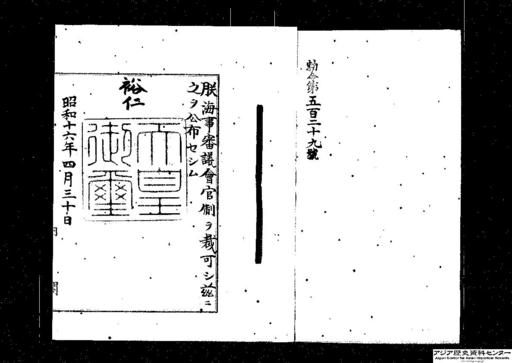 勅令第五百二十九號
朕海事審議會官制ヲ裁可シ茲ニ
之ヲ公布セシム
裕仁
天皇御璽
昭和十六年四月三十日
アジア歴史資料センター
Japan Center for Asian Historical Records